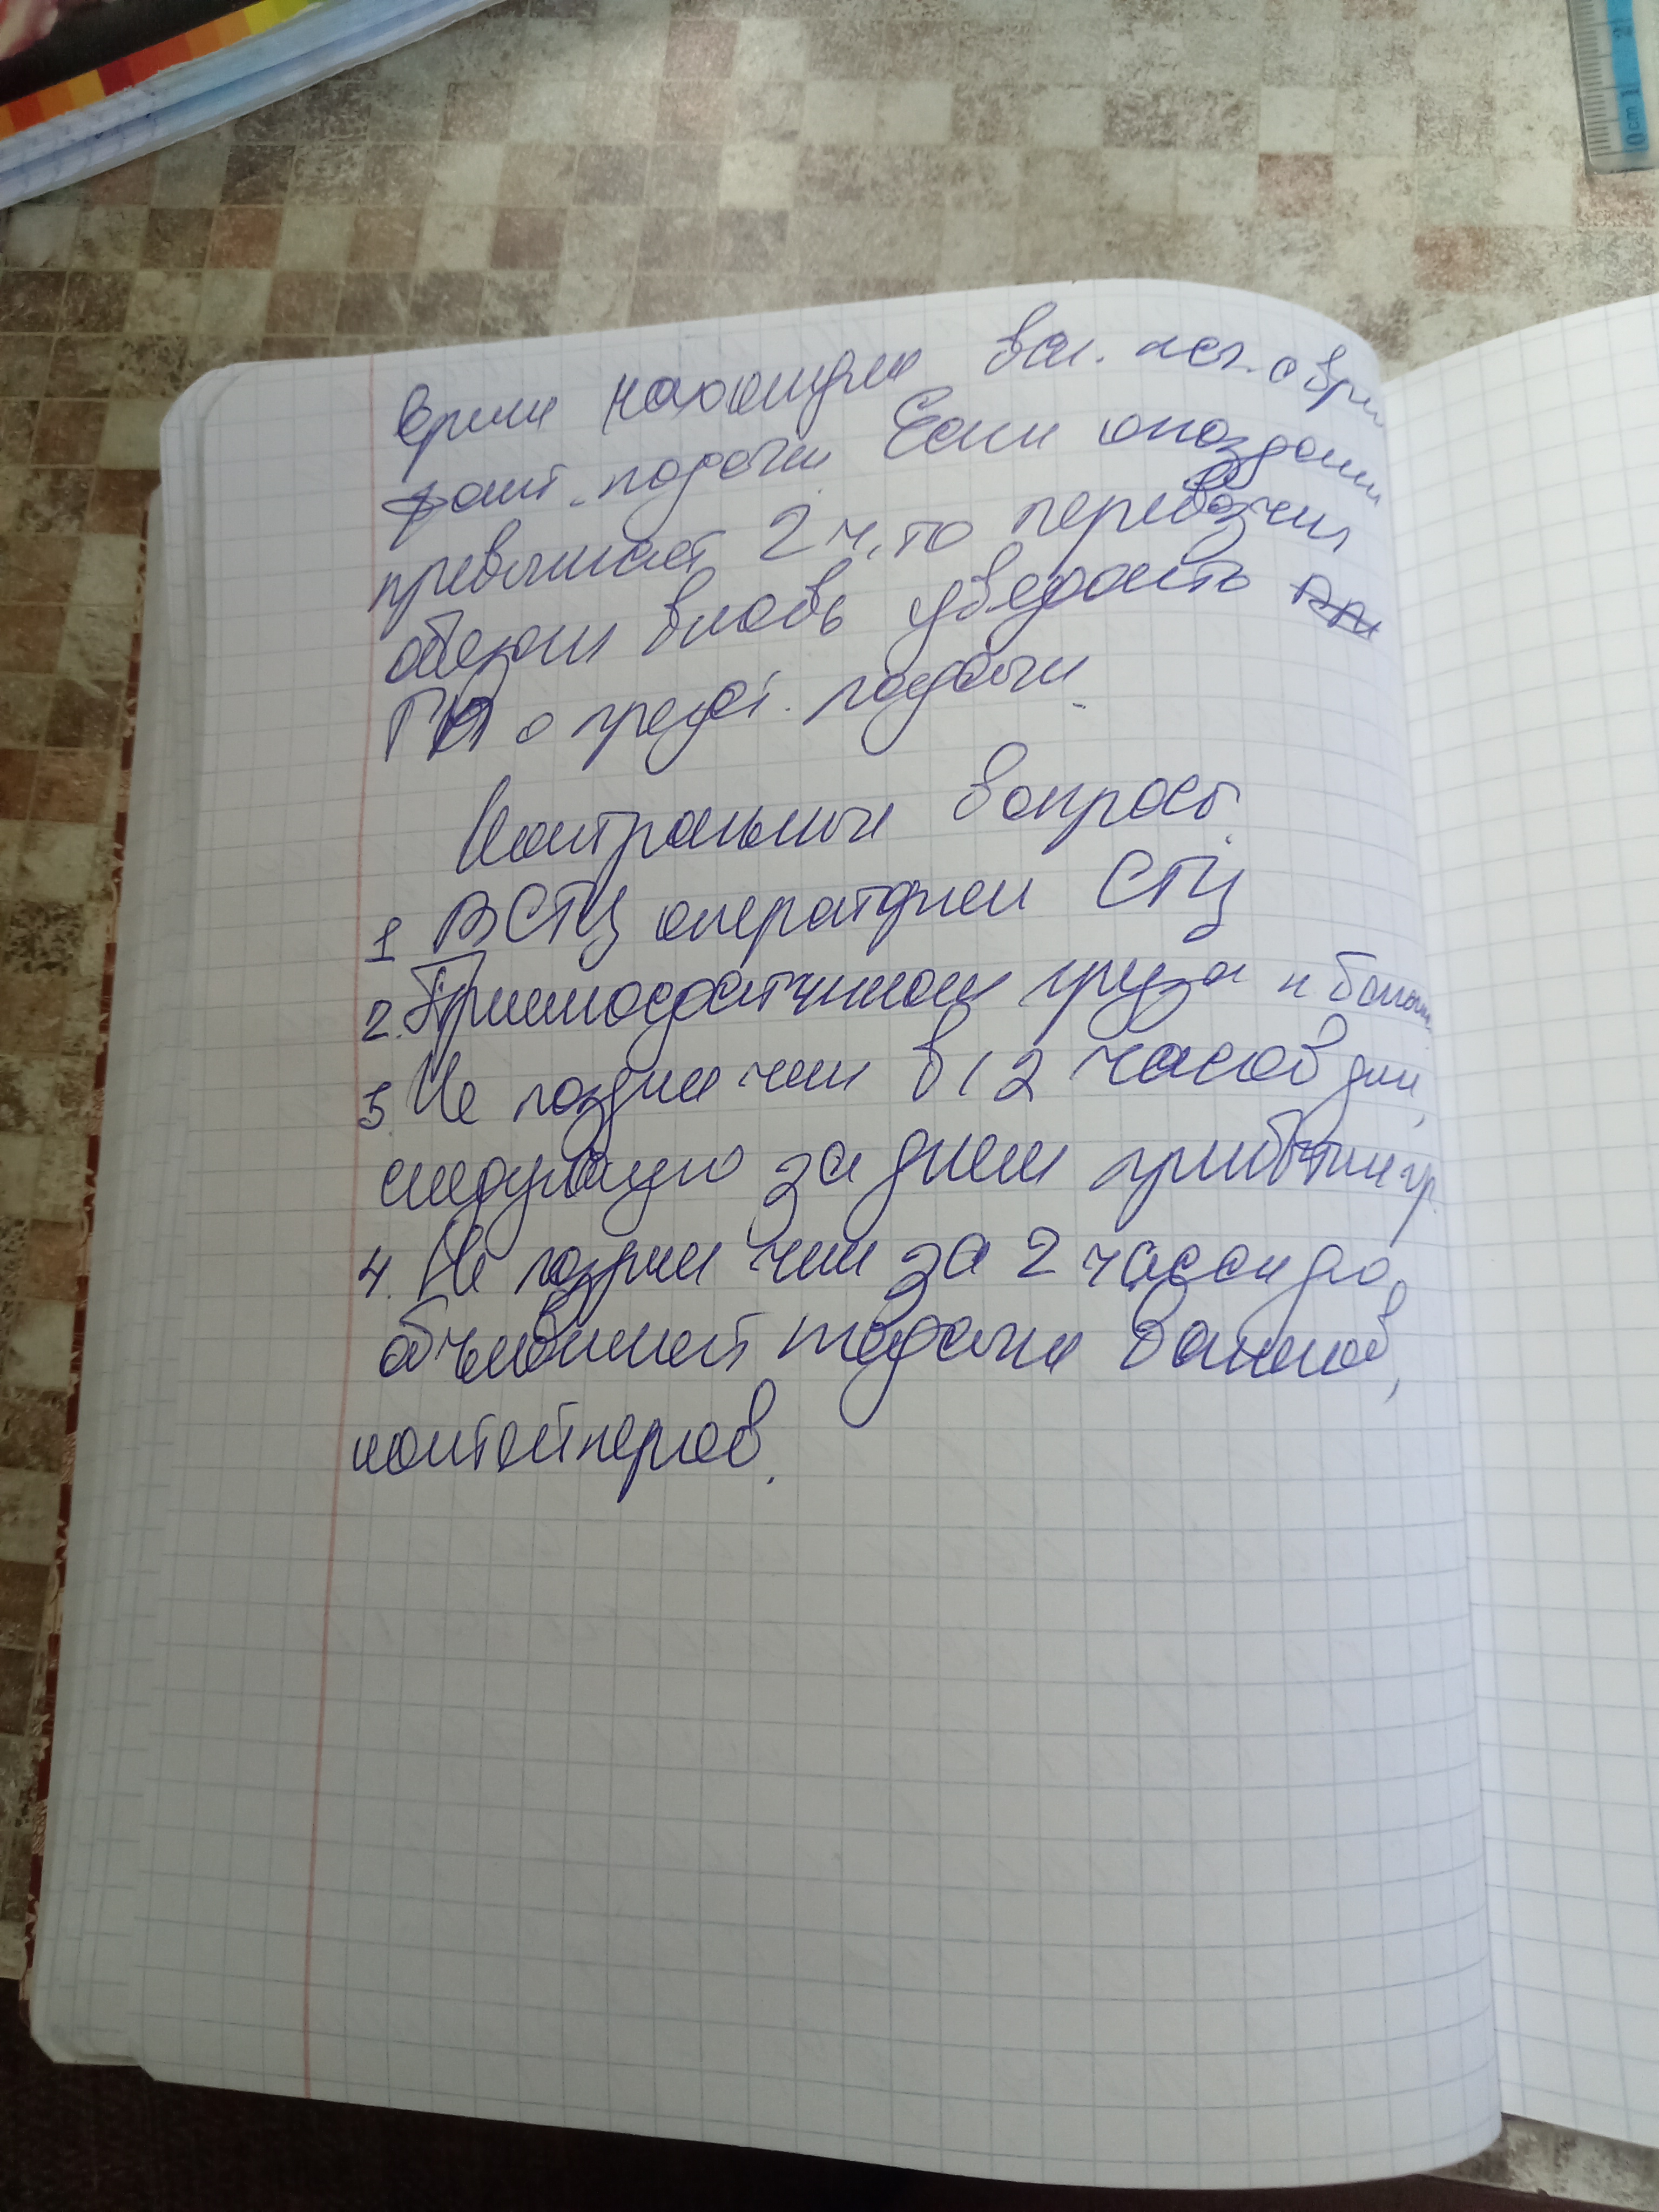 Время нахожден ваг. исч. с врем
факт. подачи. Если опоздание
превышает 2 ч, то перевозчик
обязан вновь уведомить
ГП о предст. подачи.
Контрольные вопросы.
1 В СТЦ оператором СТЦ
2. Приемосдатчиком груза и багажа.
3. Не позднее чем в 12 часов дня,
следующую за днем прибытия гр.
4. Не позднее чем за 2 часа до
объявленной подачи вагонов,
контейнеров.
0 cm 1 2